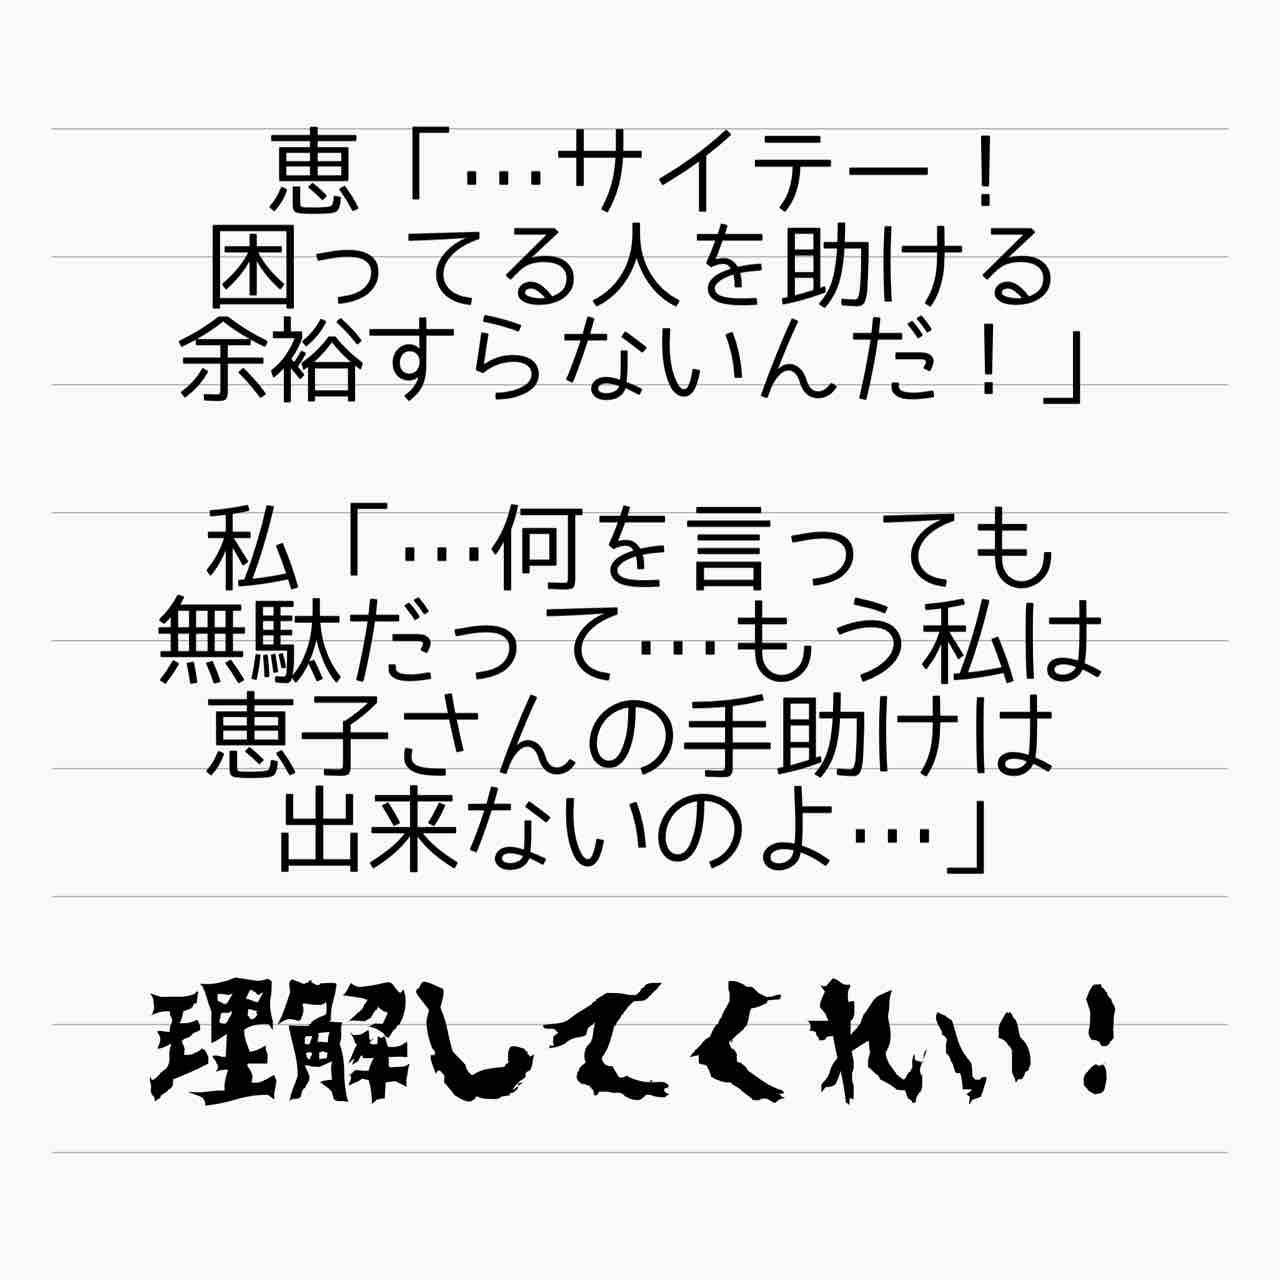 恵「…サイテー！
困ってる人を助ける
余裕すらないんだ！」
私「…何を言っても
無駄だって…もう私は
恵子さんの手助けは
出来ないのよ…」
理解してくれぃ！